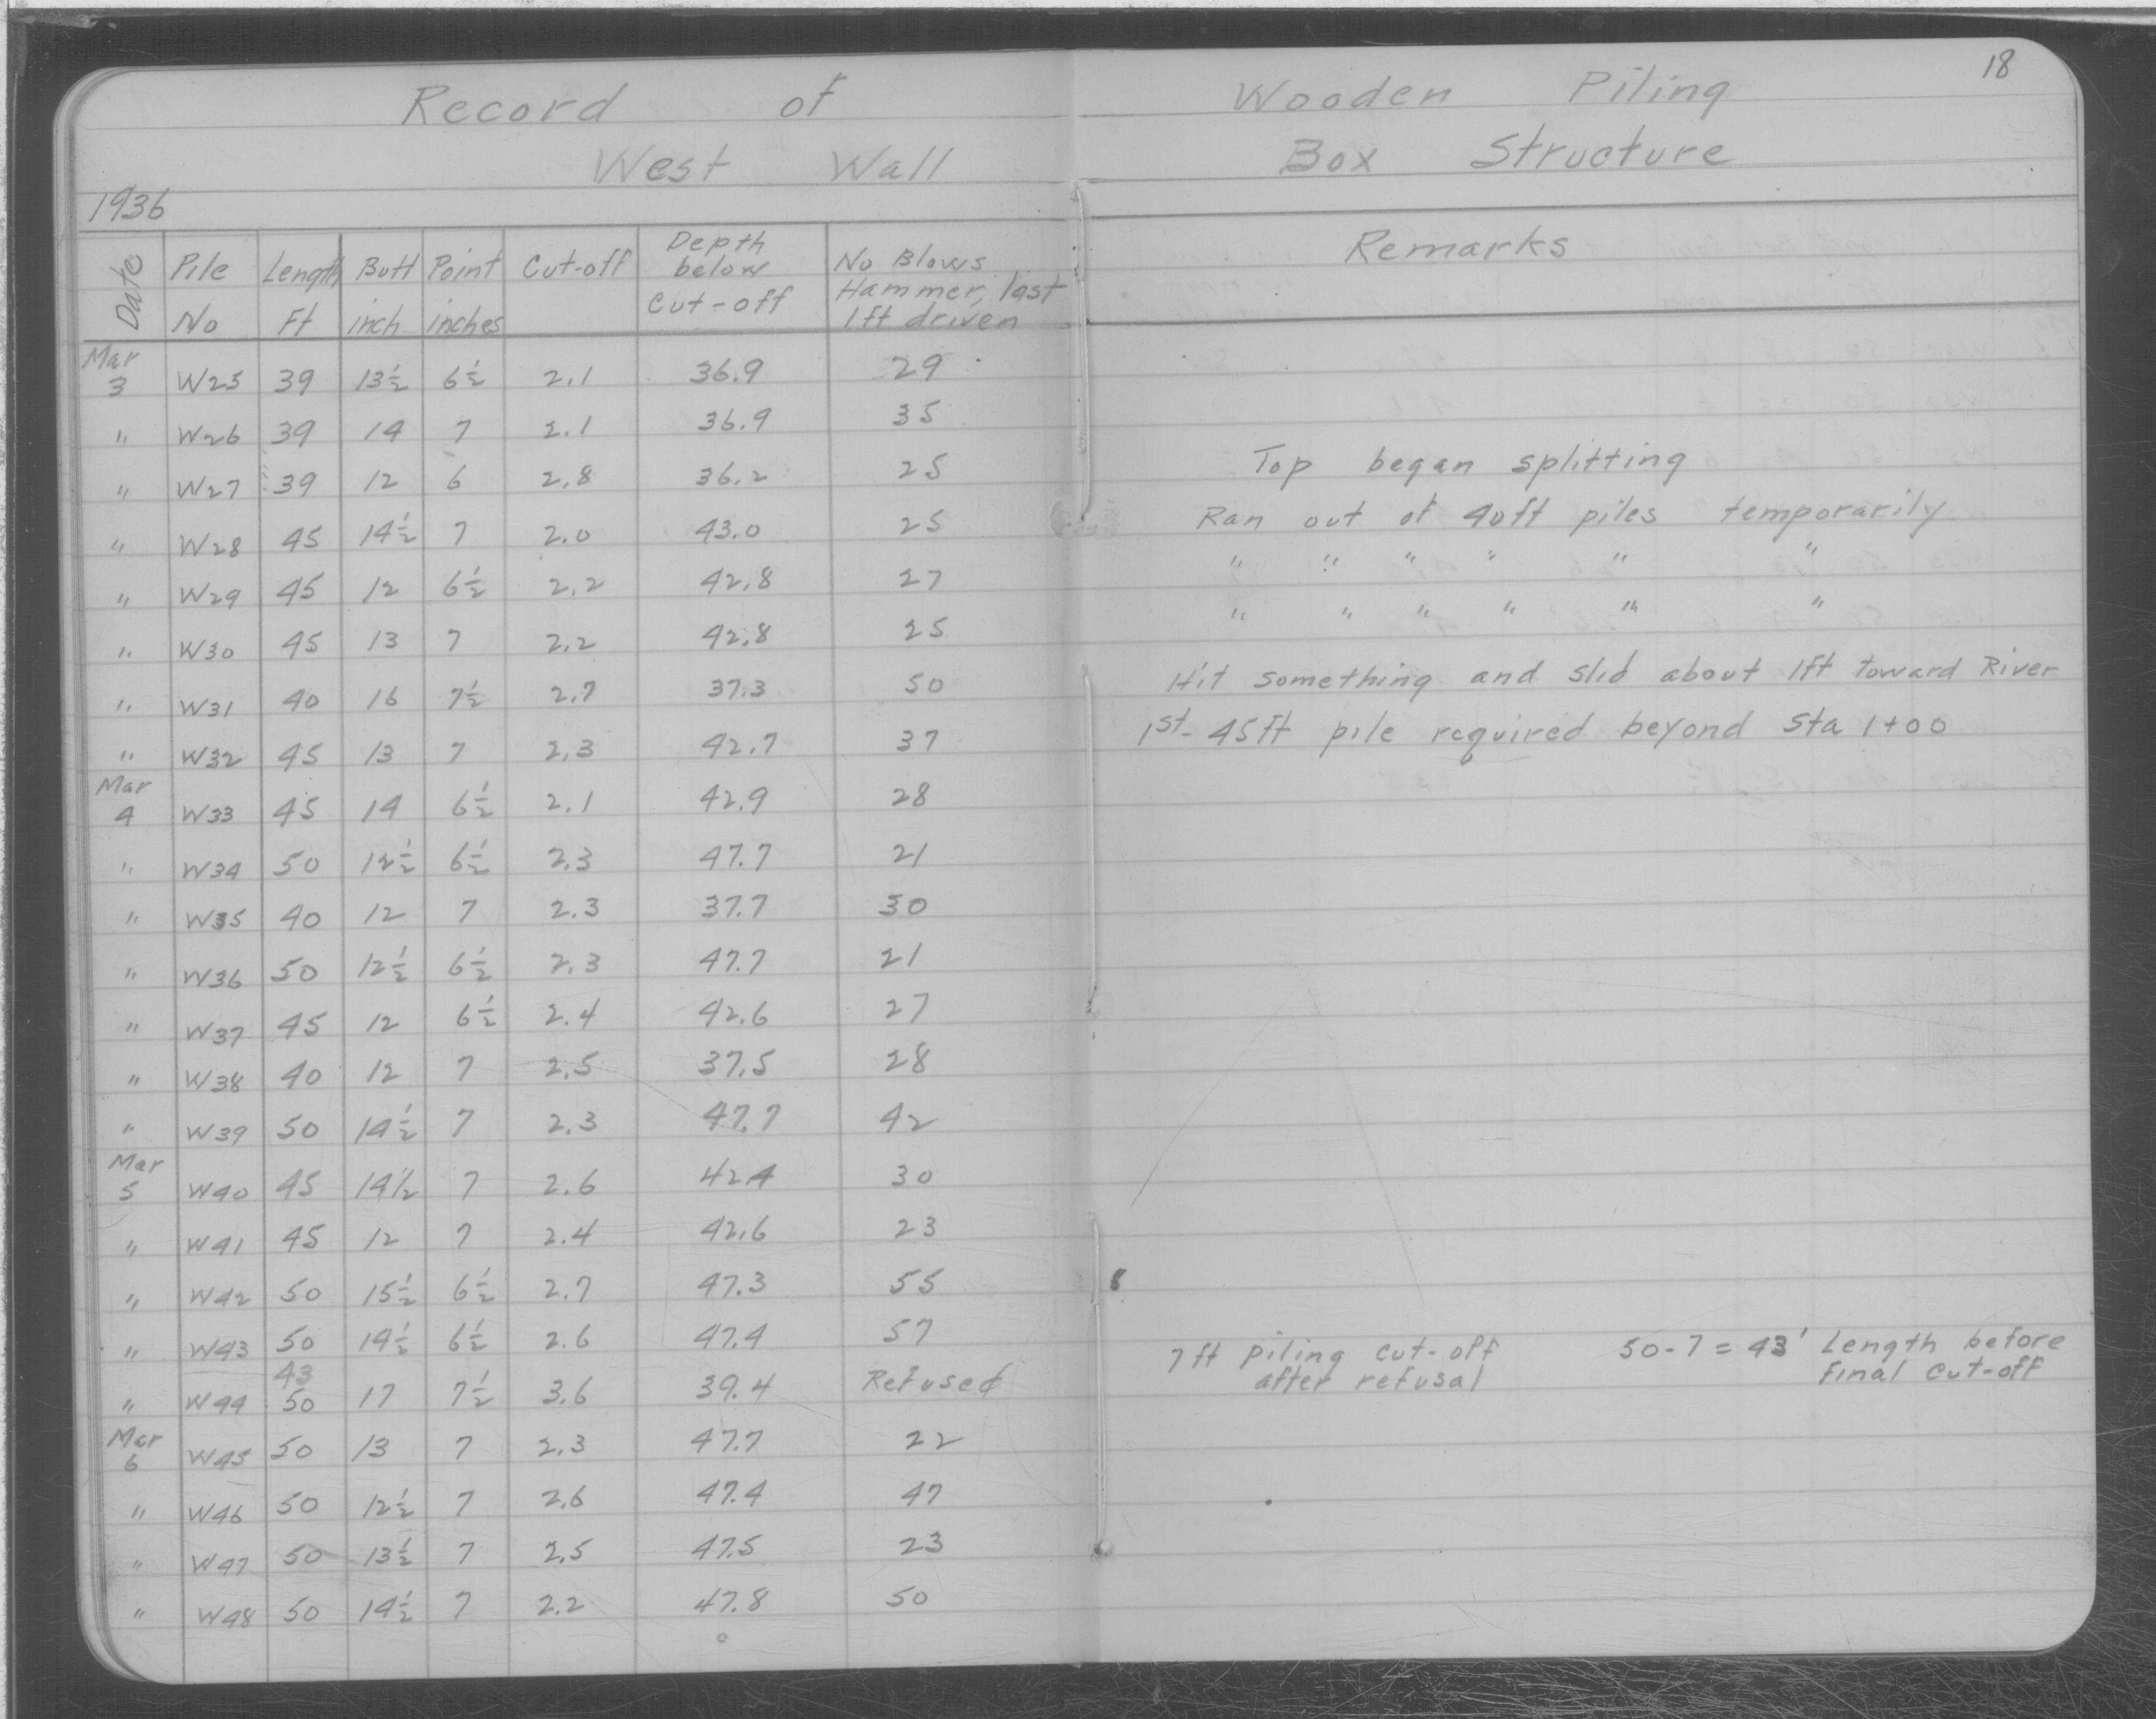 18
Record of Wooden Piling
West Wall Box Structure
1936
Date Pile No Length Ft Butt inch Point inches Cut-off Depth below Cut-off No Blows Hammer, last 1ft driven Remarks
Mar 3 W25 39 13½ 6½ 2.1 36.9 29
" W26 39 14 7 2.1 36.9 35
" W27 39 12 6 2.8 36.2 25 Top began splitting
" W28 45 14½ 7 2.0 43.0 25 Ran out of 40ft piles temporarily
" W29 45 12 6½ 2.2 42.8 27 " " " " " "
" W30 45 13 7 2.2 42.8 25 " " " " " "
" W31 40 16 7½ 2.7 37.3 50 Hit something and slid about 1ft toward River
" W32 45 13 7 2.3 42.7 37 1st- 45ft pile required beyond Sta 1+00
Mar 4 W33 45 14 6½ 2.1 42.9 28
" W34 50 12½ 6½ 2.3 47.7 21
" W35 40 12 7 2.3 37.7 30
" W36 50 12½ 6½ 2.3 47.7 21
" W37 45 12 6½ 2.4 42.6 27
" W38 40 12 7 2.5 37.5 28
" W39 50 14½ 7 2.3 47.7 42
Mar 5 W40 45 14½ 7 2.6 42.4 30
" W41 45 12 7 2.4 42.6 23
" W42 50 15½ 6½ 2.7 47.3 55
" W43 50 14½ 6½ 2.6 47.4 57
43
" W44 50 17 7½ 3.6 39.4 Refused 7ft piling cut-off after refusal 50-7=43' Length before final cut-off
Mar 6 W45 50 13 7 2.3 47.7 22
" W46 50 12½ 7 2.6 47.4 47
" W47 50 13½ 7 2.5 47.5 23
" W48 50 14½ 7 2.2 47.8 50